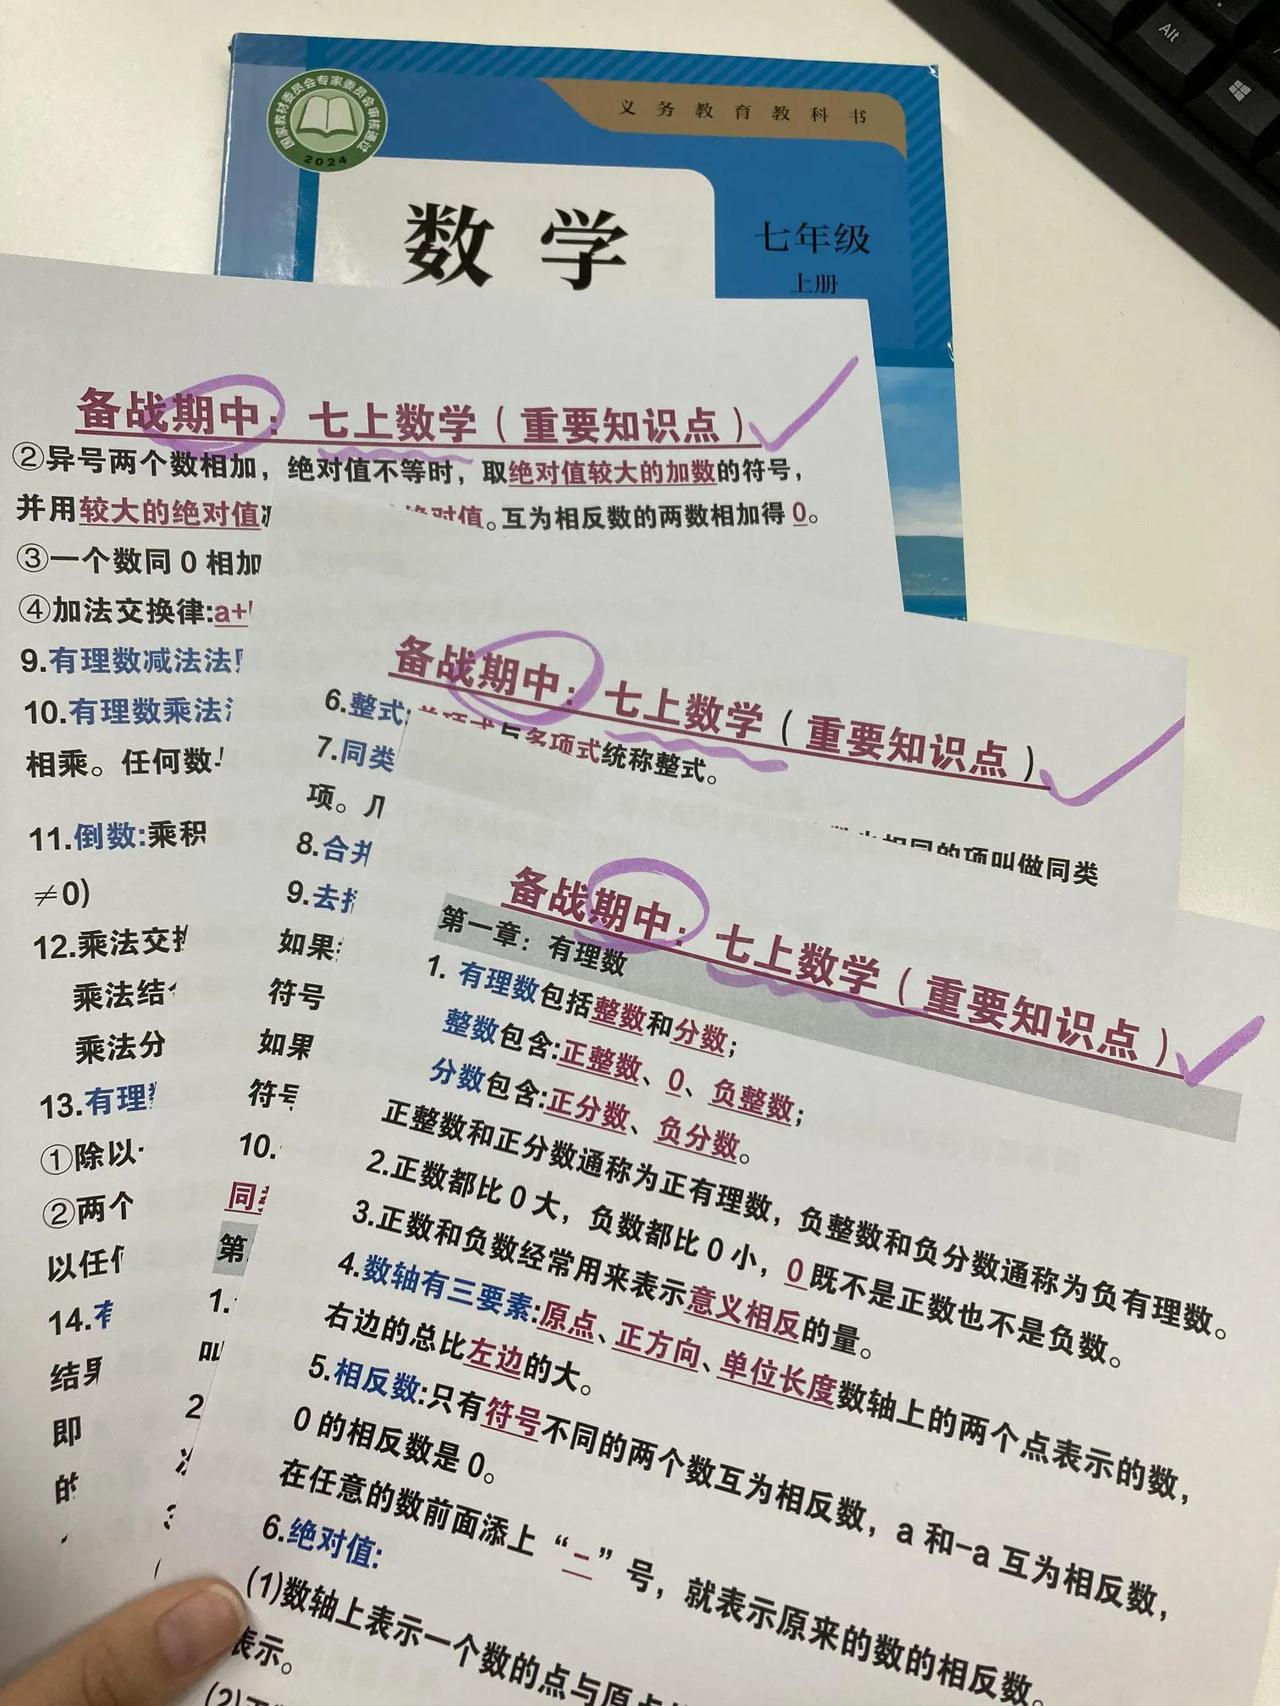 Alt
国家教材委员会专家委员会审核通过
2024
义务教育教科书
数学
七年级
上册
备战期中：七上数学（重要知识点）
②异号两个数相加，绝对值不等时，取绝对值较大的加数的符号，
并用较大的绝对值 绝对值。互为相反数的两数相加得0。
③一个数同0相加
④加法交换律:a+
9.有理数减法法
10.有理数乘法
相乘。任何数
11.倒数:乘积
≠0)
12.乘法交换
乘法结
乘法分
13.有理数
①除以
②两个
以任
14.有
结果
即
的
备战期中：七上数学（重要知识点）
6.整式:单项式与多项式统称整式。
7.同类
项。几 相同的项叫做同类
8.合并
9.去括
如果
符号
如果
符号
10.
同类
第
1.
叫
2
次
3
备战期中：七上数学（重要知识点）
第一章：有理数
1. 有理数包括整数和分数；
整数包含:正整数、0、负整数；
分数包含:正分数、负分数。
正整数和正分数通称为正有理数，负整数和负分数通称为负有理数。
2.正数都比0大，负数都比0小，0既不是正数也不是负数。
3.正数和负数经常用来表示意义相反的量。
4.数轴有三要素:原点、正方向、单位长度数轴上的两个点表示的数，
右边的总比左边的大。
5.相反数:只有符号不同的两个数互为相反数，a和-a互为相反数，
0的相反数是0。
在任意的数前面添上“-”号，就表示原来的数的相反数。
6.绝对值:
(1)数轴上表示一个数的点与原点
表示。
(2)